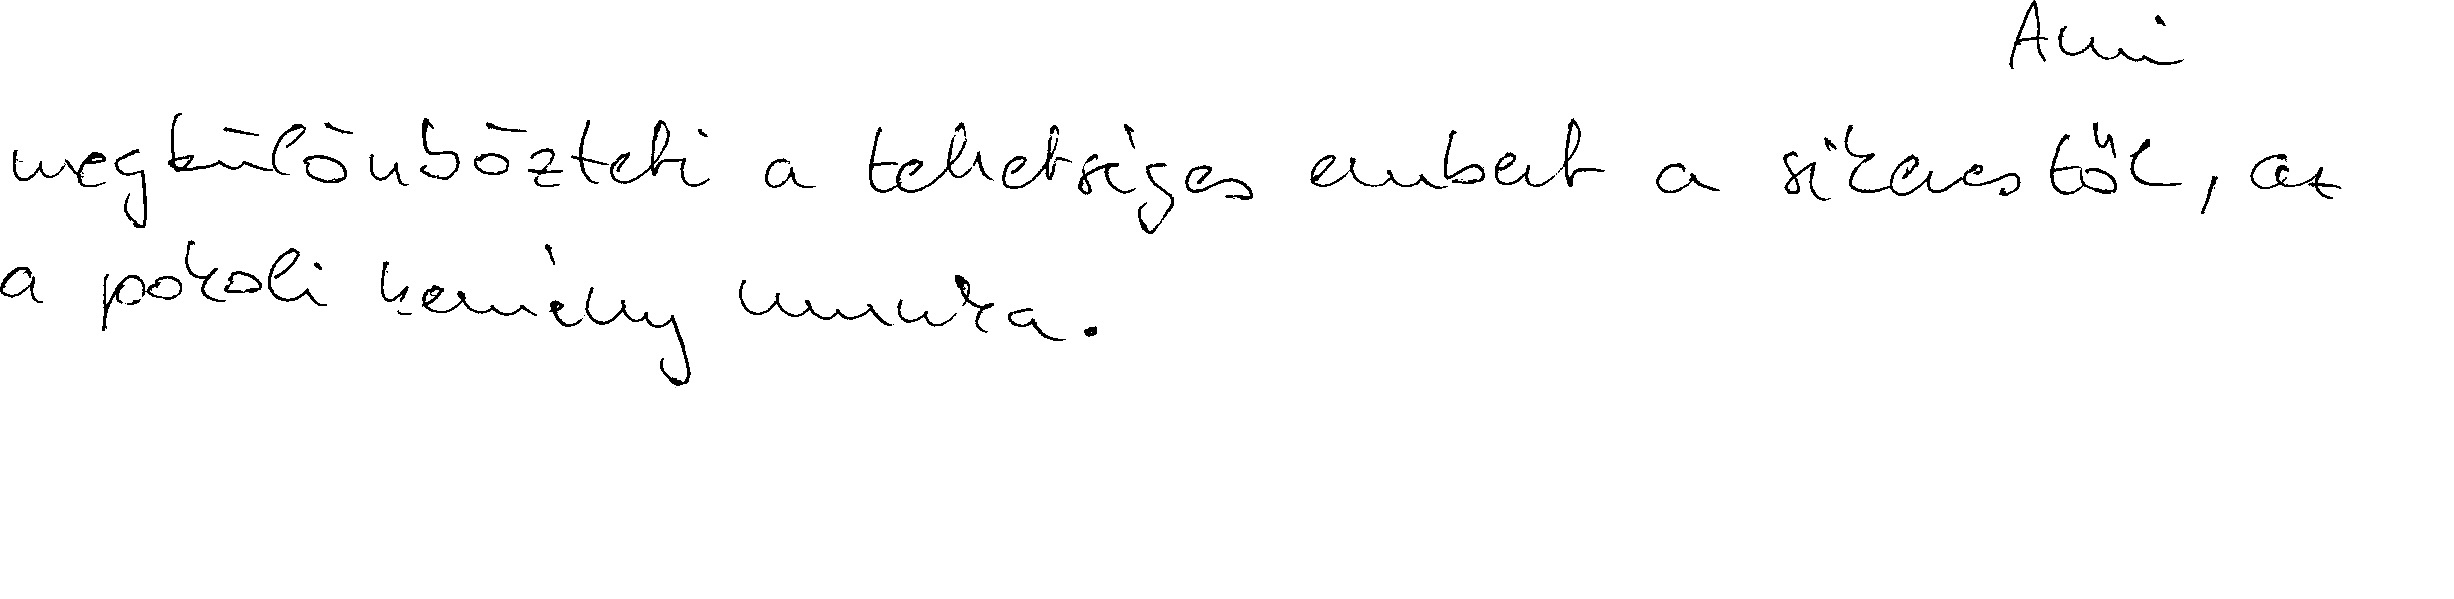 Ami
megkülönbözteti a tehetséges embert a sikerestől, az
a pokoli kemény munka.